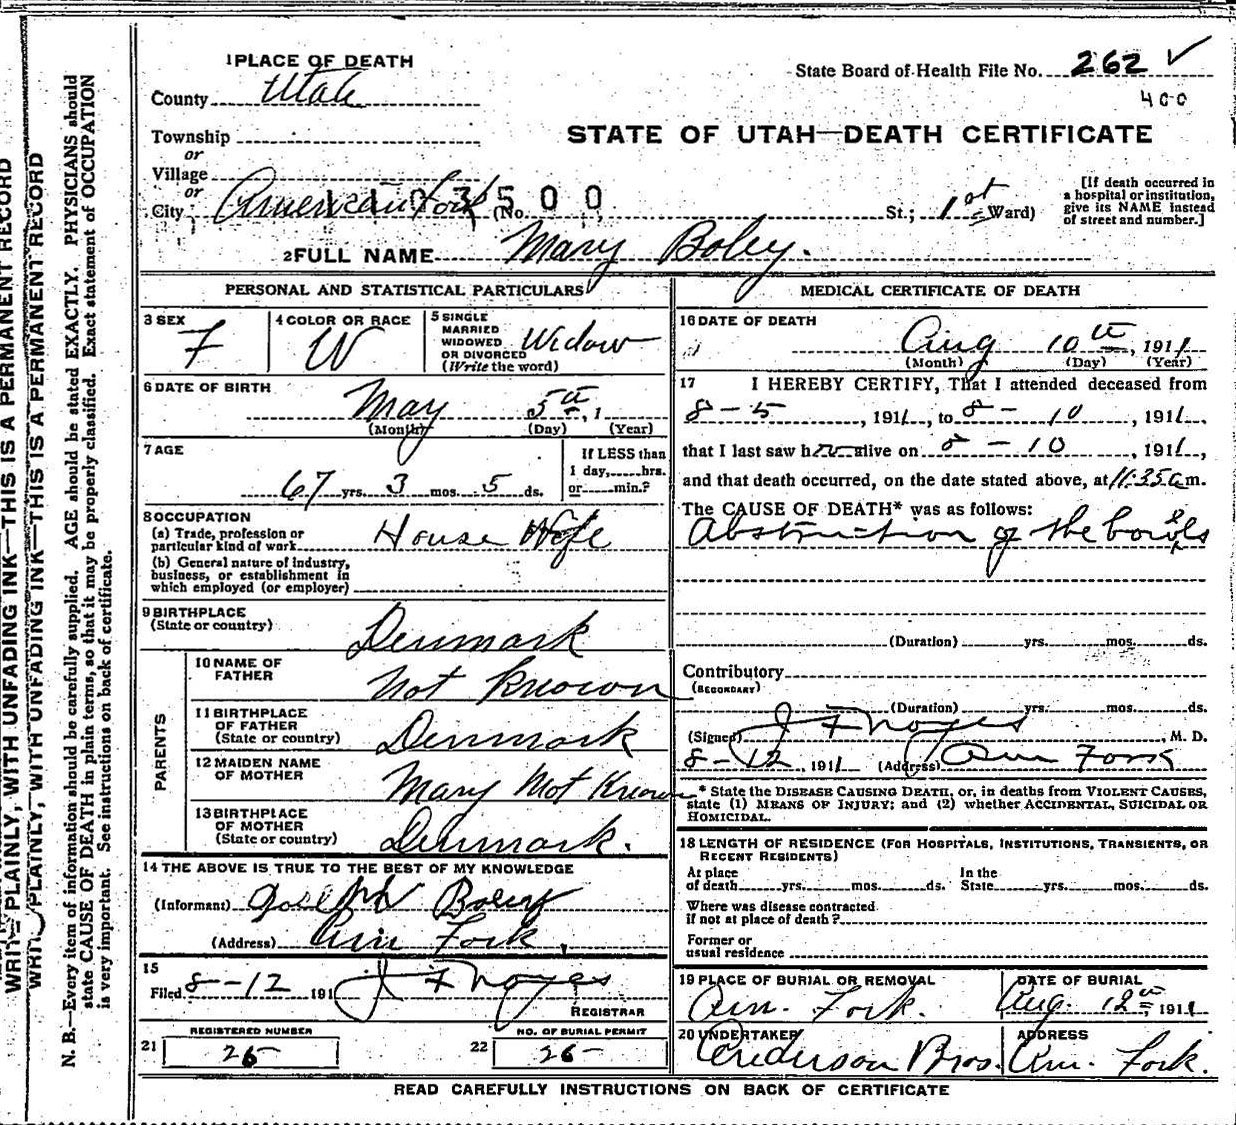 1 PLACE OF DEATH
County Utah
State Board of Health File No. 262 ✓
400
Township
or
Village
or
City American Fork (No. St.; 1st Ward)
1 1 0 3 5 0 0
STATE OF UTAH—DEATH CERTIFICATE
[If death occurred in
a hospital or institution,
give its NAME instead
of street and number.]
2 FULL NAME Mary Boley.
PERSONAL AND STATISTICAL PARTICULARS
3 SEX F
4 COLOR OR RACE W
5 SINGLE
MARRIED
WIDOWED
OR DIVORCED
(Write the word)
Widow
6 DATE OF BIRTH
May 5th, 1
(Month) (Day) (Year)
7 AGE
67 yrs. 3 mos. 5 ds.
If LESS than
1 day, hrs.
or min.?
8 OCCUPATION
(a) Trade, profession or
particular kind of work House Wife
(b) General nature of industry,
business, or establishment in
which employed (or employer)
9 BIRTHPLACE
(State or country) Denmark
PARENTS
10 NAME OF
FATHER Not Known
11 BIRTHPLACE
OF FATHER
(State or country) Denmark
12 MAIDEN NAME
OF MOTHER Mary Not Known
13 BIRTHPLACE
OF MOTHER
(State or country) Denmark.
14 THE ABOVE IS TRUE TO THE BEST OF MY KNOWLEDGE
(Informant) Joseph Boley
(Address) Am Fork,
15
Filed 8-12 191 J F Noyes
REGISTRAR
REGISTERED NUMBER
21 26-
NO. OF BURIAL PERMIT
22 26-
MEDICAL CERTIFICATE OF DEATH
16 DATE OF DEATH
Aug 10th, 1911
(Month) (Day) (Year)
17 I HEREBY CERTIFY, That I attended deceased from
8-5, 1911, to 8-10, 1911,
that I last saw her alive on 8-10, 1911,
and that death occurred, on the date stated above, at 11:35 a.m.
The CAUSE OF DEATH* was as follows:
Abstruction of the bowels
(Duration) yrs. mos. ds.
Contributory
(SECONDARY)
(Duration) yrs. mos. ds.
(Signed) J F Noyes, M. D.
8-12, 1911 (Address) Am Fork
* State the DISEASE CAUSING DEATH, or, in deaths from VIOLENT CAUSES,
state (1) MEANS OF INJURY; and (2) whether ACCIDENTAL, SUICIDAL OR
HOMICIDAL.
18 LENGTH OF RESIDENCE (FOR HOSPITALS, INSTITUTIONS, TRANSIENTS, OR
RECENT RESIDENTS)
At place
of death yrs. mos. ds.
In the
State yrs. mos. ds.
Where was disease contracted
if not at place of death?
Former or
usual residence
19 PLACE OF BURIAL OR REMOVAL
Am. Fork.
DATE OF BURIAL
Aug. 12th, 1911
20 UNDERTAKER
Anderson Bros.
ADDRESS
Am. Fork.
READ CAREFULLY INSTRUCTIONS ON BACK OF CERTIFICATE
WRITE PLAINLY, WITH UNFADING INK—THIS IS A PERMANENT RECORD
WRITE PLAINLY, WITH UNFADING INK—THIS IS A PERMANENT RECORD
N. B.—Every item of information should be carefully supplied. AGE should be stated EXACTLY. PHYSICIANS should
state CAUSE OF DEATH in plain terms, so that it may be properly classified. Exact statement of OCCUPATION
is very important. See instructions on back of certificate.